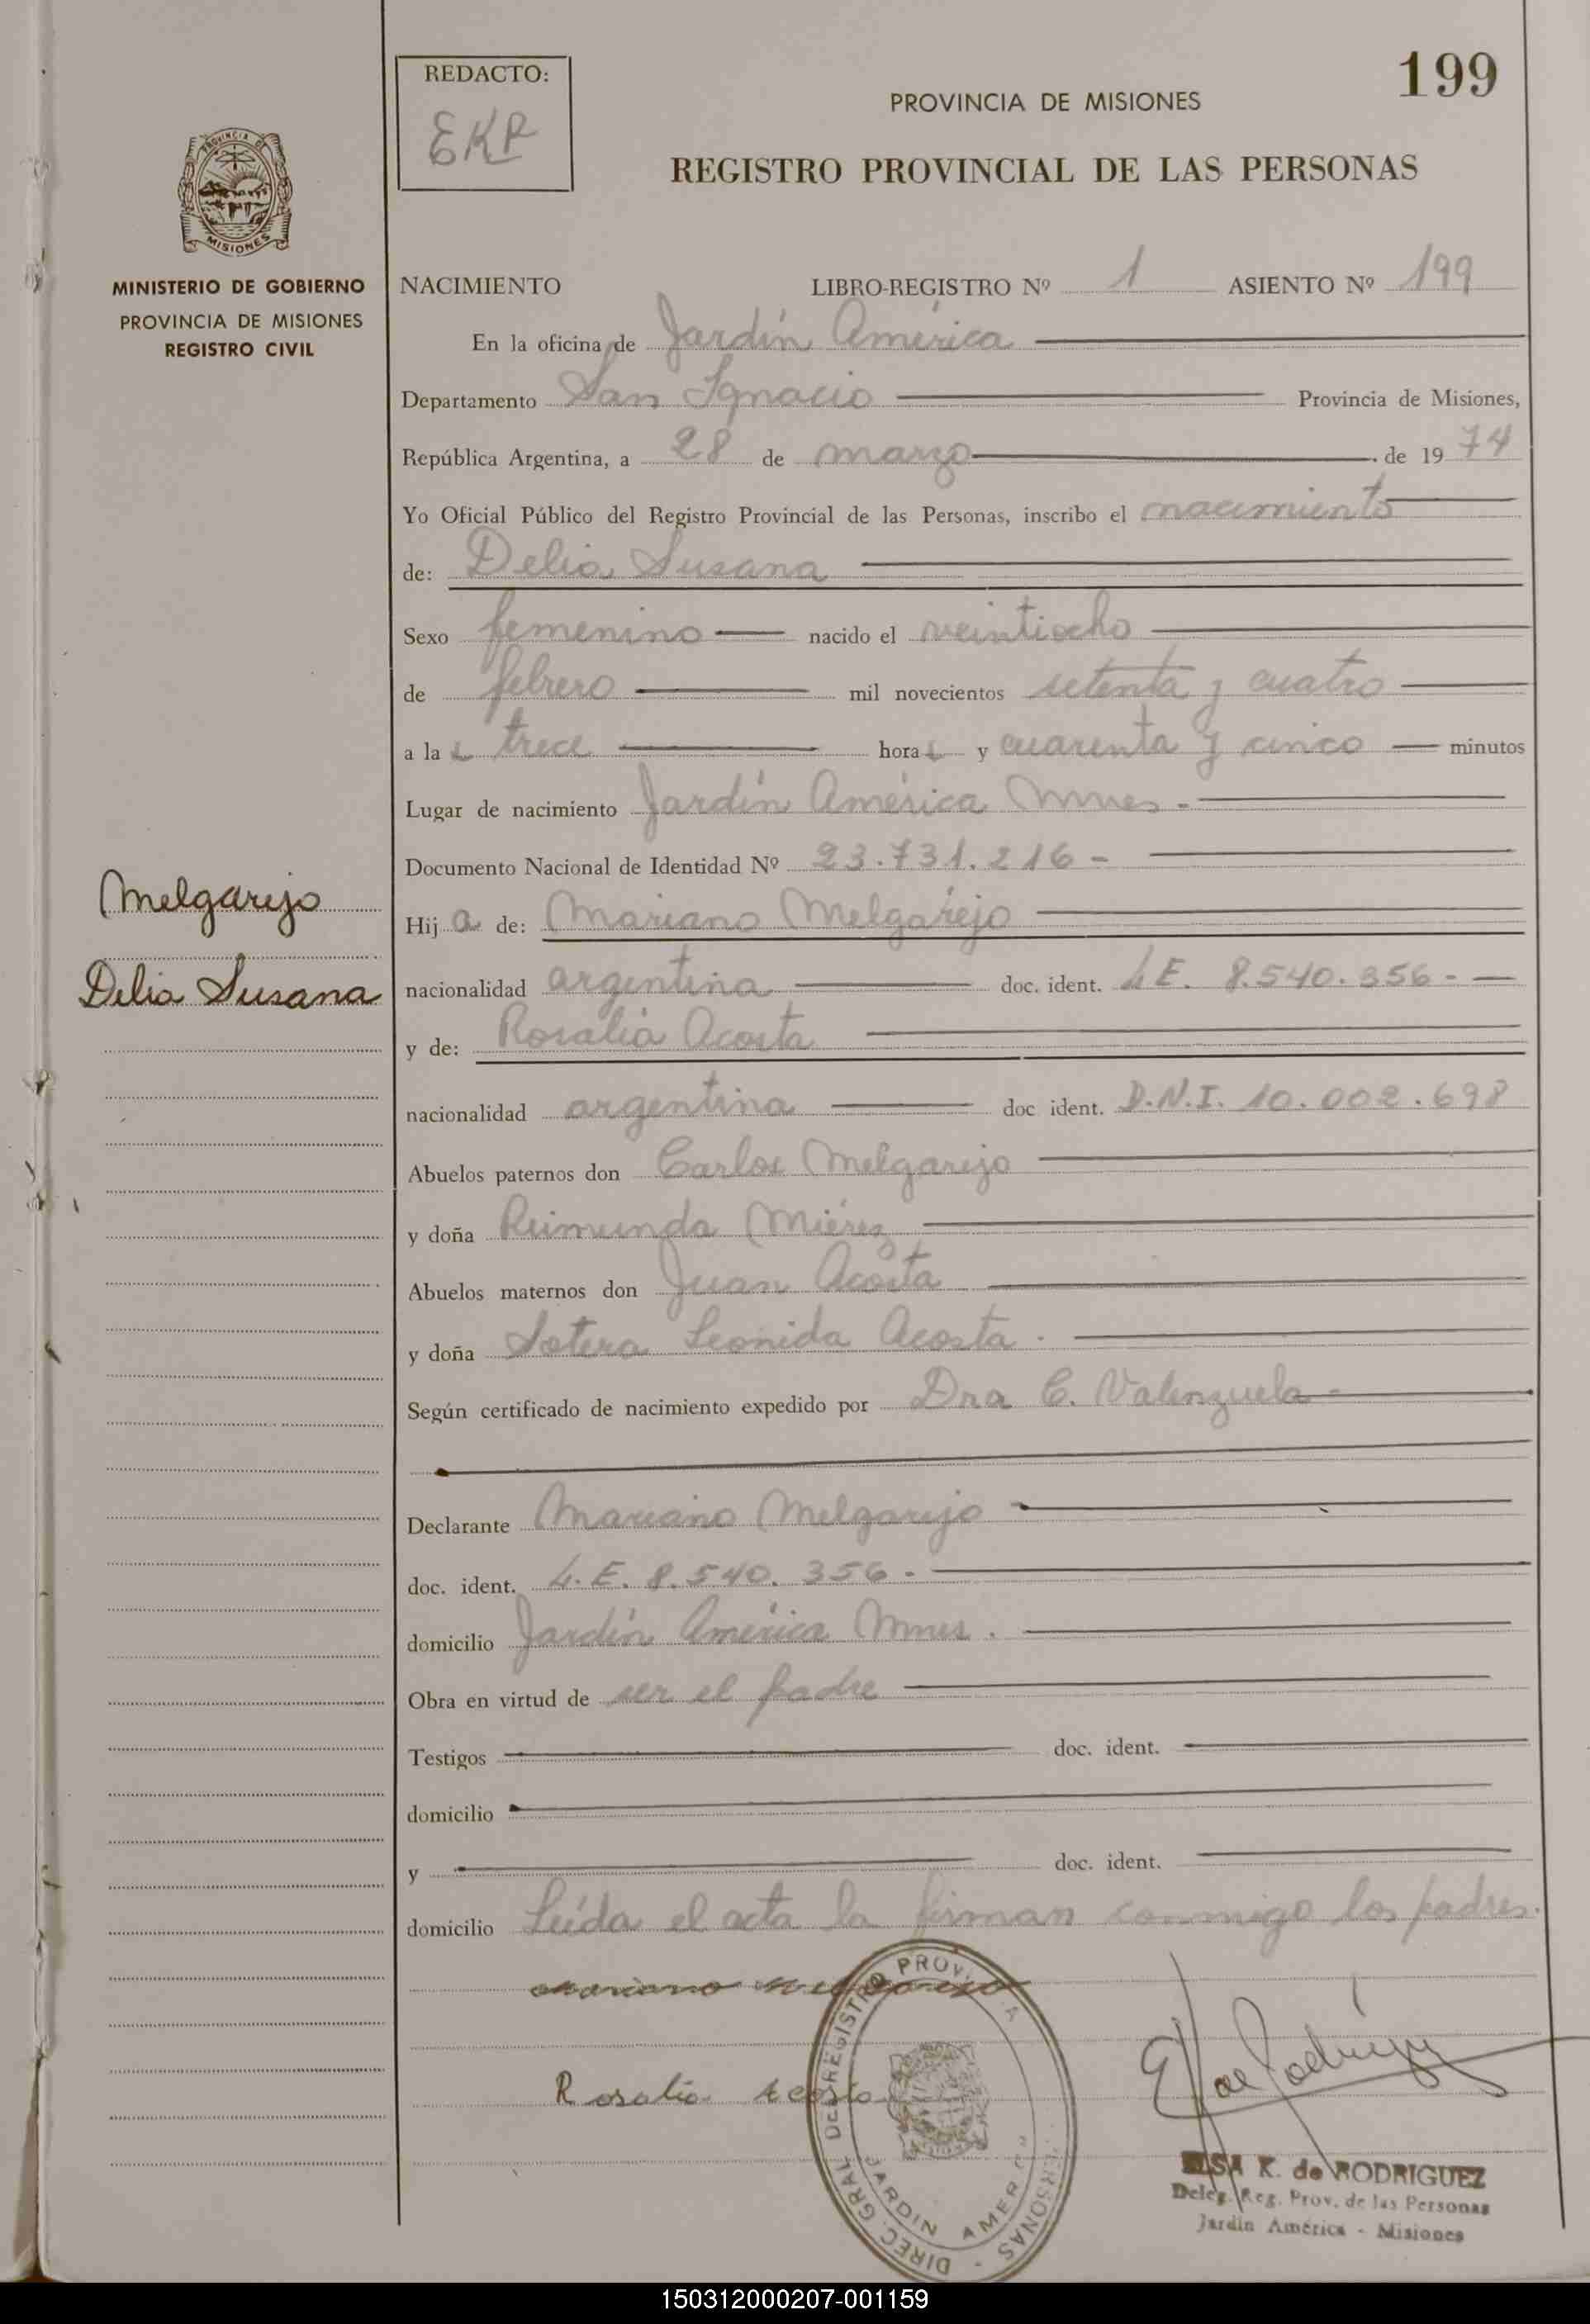 199
REDACTO:
EKR
PROVINCIA DE MISIONES
REGISTRO PROVINCIAL DE LAS PERSONAS
PROVINCIA DE
MISIONES
MINISTERIO DE GOBIERNO
PROVINCIA DE MISIONES
REGISTRO CIVIL
NACIMIENTO LIBRO-REGISTRO Nº 1 ASIENTO Nº 199
En la oficina de Jardín América
Departamento San Ignacio Provincia de Misiones,
República Argentina, a 28 de marzo de 1974
Yo Oficial Público del Registro Provincial de las Personas, inscribo el nacimiento
de: Delia Susana
Sexo femenino nacido el veintiocho
de febrero mil novecientos setenta y cuatro
a las trece horas y cuarenta y cinco minutos
Lugar de nacimiento Jardín América Mnes -
Documento Nacional de Identidad Nº 23.731.216 -
Melgarejo
Hija de: Mariano Melgarejo
Delia Susana
nacionalidad argentina doc. ident. L.E. 8.540.356 -
y de: Rosalia Acosta
nacionalidad argentina doc ident. D.N.I. 10.002.698
Abuelos paternos don Carlos Melgarejo
y doña Reimunda Miérez
Abuelos maternos don Juan Acosta
y doña Sotera Leonida Acosta .
Según certificado de nacimiento expedido por Dra C. Valenzuela -
Declarante Mariano Melgarejo
doc. ident. L.E. 8.540.356 -
domicilio Jardín América Mnes .
Obra en virtud de ser el padre
Testigos doc. ident.
domicilio
y doc. ident.
domicilio Leída el acta la firman conmigo los padres.
Mariano Melgarejo
Rosalia Acosta
DIREC. GRAL. DEL REGISTRO PROV. PERSONAS -
JARDIN AMERICA
E K de Rodriguez
ELSA K. de RODRIGUEZ
Deleg. Reg. Prov. de las Personas
Jardín América - Misiones
150312000207-001159